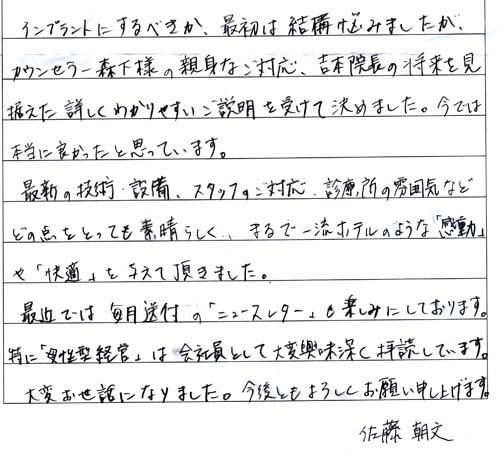 インプラントにするべきか、最初は結構悩みましたが、
カウンセラー森下様の親身なご対応、吉本院長の将来を見
据えた詳しくわかりやすいご説明を受けて決めました。今では
本当に良かったと思っています。
最新の技術・設備、スタッフのご対応、診療所の雰囲気など
どの点をとっても素晴らしく、まるで一流ホテルのような「感動」
や「快適」を与えて頂きました。
最近では毎月送付の「ニュースレター」も楽しみにしております。
特に「男性型経営」は会社員として大変興味深く拝読しています。
大変お世話になりました。今後ともよろしくお願い申し上げます。
佐藤 朝文